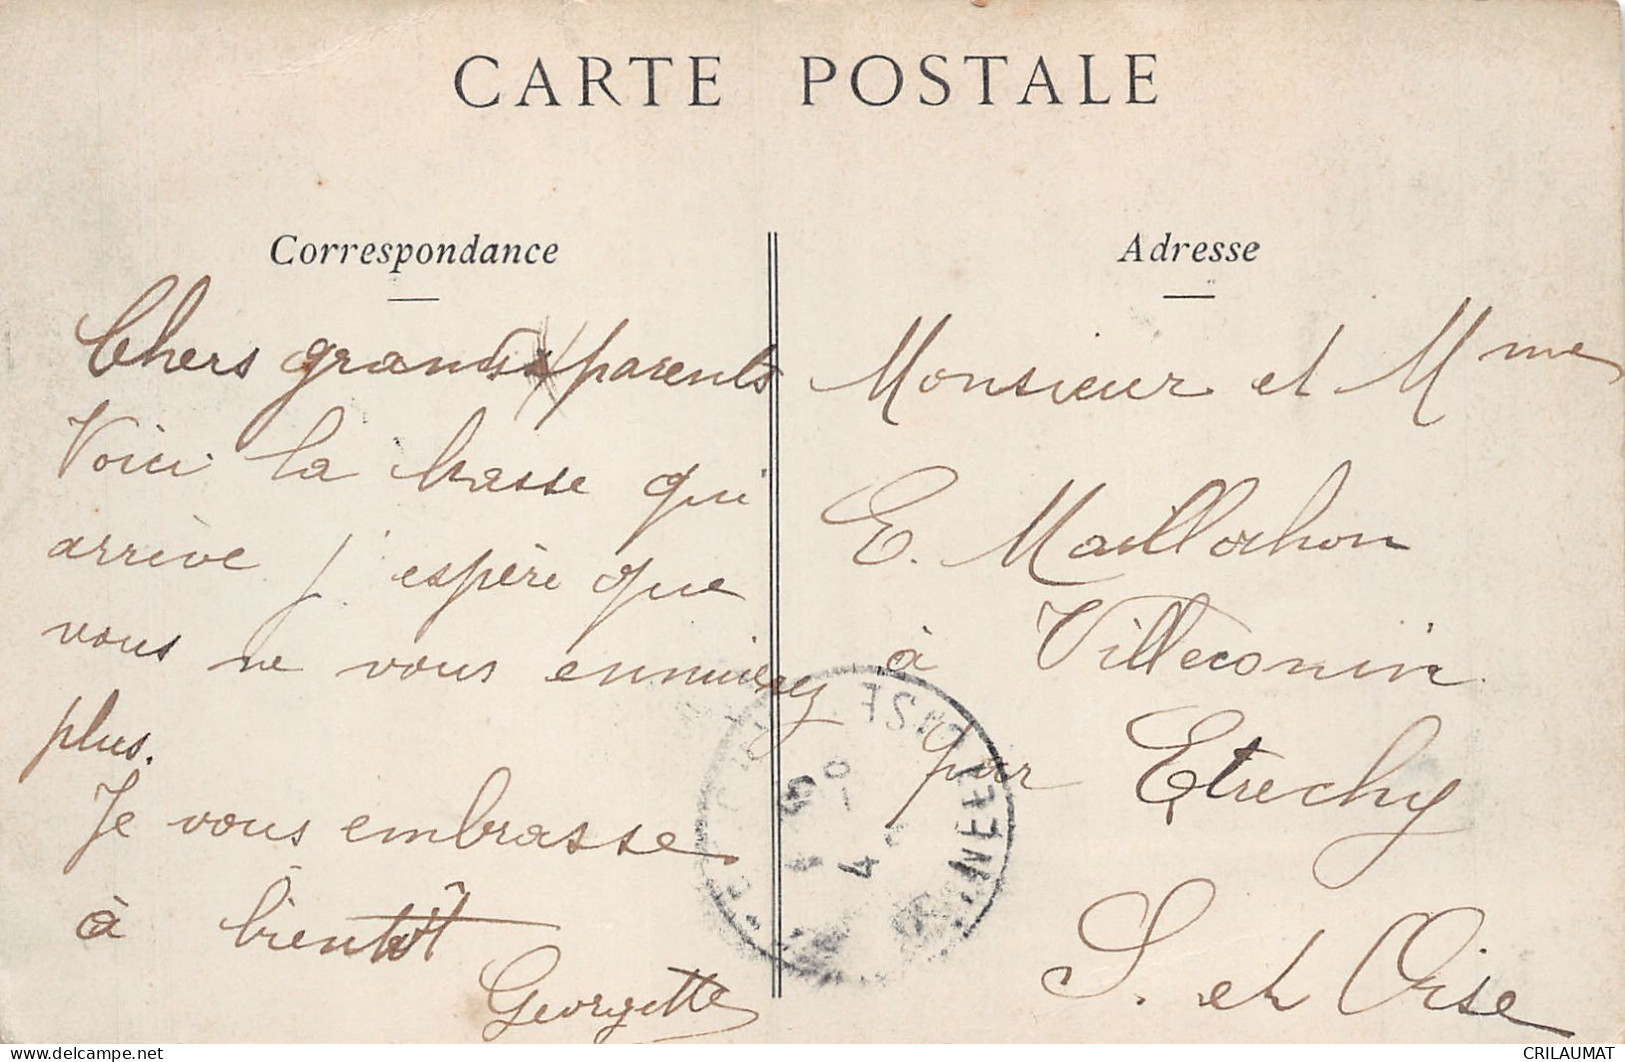 CARTE POSTALE
Correspondance
Chers grands parents
Voici la chasse qui
arrive j'espère que
vous ne vous ennuierez
plus.
Je vous embrasse
à bientôt
Georgette
Adresse
Monsieur et Mme
E. Maillochon
à Villeconin
par Etrechy
S. et Oise
CRILAUMAT